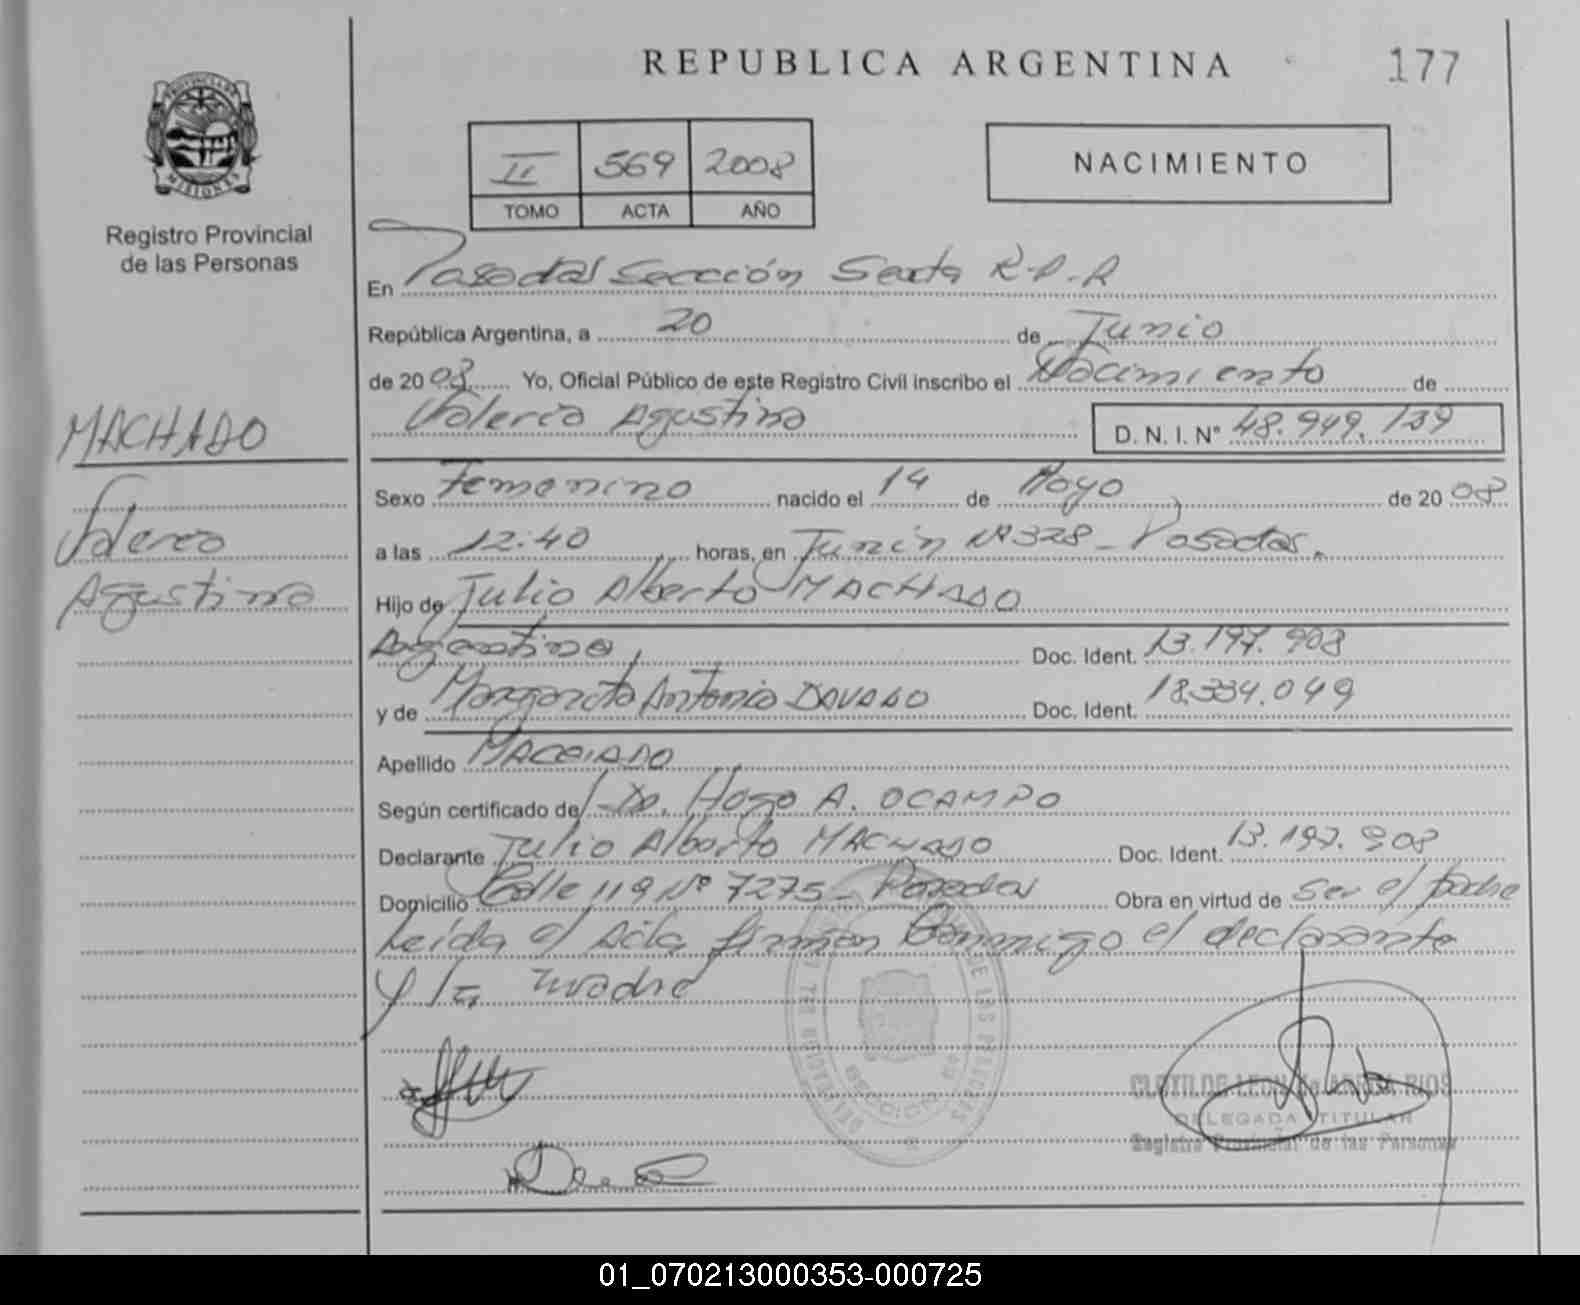 REPUBLICA ARGENTINA
177
PROVINCIA DE
MISIONES
Registro Provincial
de las Personas
II 569 2008
TOMO ACTA AÑO
NACIMIENTO
En Posadas Sección Sexta R.P.P
República Argentina, a 20 de Junio
de 2008 Yo, Oficial Público de este Registro Civil inscribo el Nacimiento de
Valeria Agustina D.N.I.N° 48.949.139
MACHADO
Valeria
Agustina
Sexo Femenino nacido el 14 de Mayo de 2008
a las 12:40 horas, en Junín Nº 328 - Posadas.
Hijo de Julio Alberto MACHADO
Argentino Doc. Ident. 13.197.908
y de Margarita Antonia Doc. Ident. 18.334.049
Apellido MACHADO
Según certificado de Dr. Hugo A. OCAMPO
Declarante Julio Alberto MACHADO Doc. Ident. 13.197.908
Domicilio Calle 119 Nº 7275 - Posadas Obra en virtud de ser el padre
Leída el Acta firman Conmigo el declarante
y la madre
DE LAS PERSONAS
SECCION 6a
CLOTILDE LEON RIOS
DELEGADA TITULAR
Registro Provincial de las Personas
01_070213000353-000725